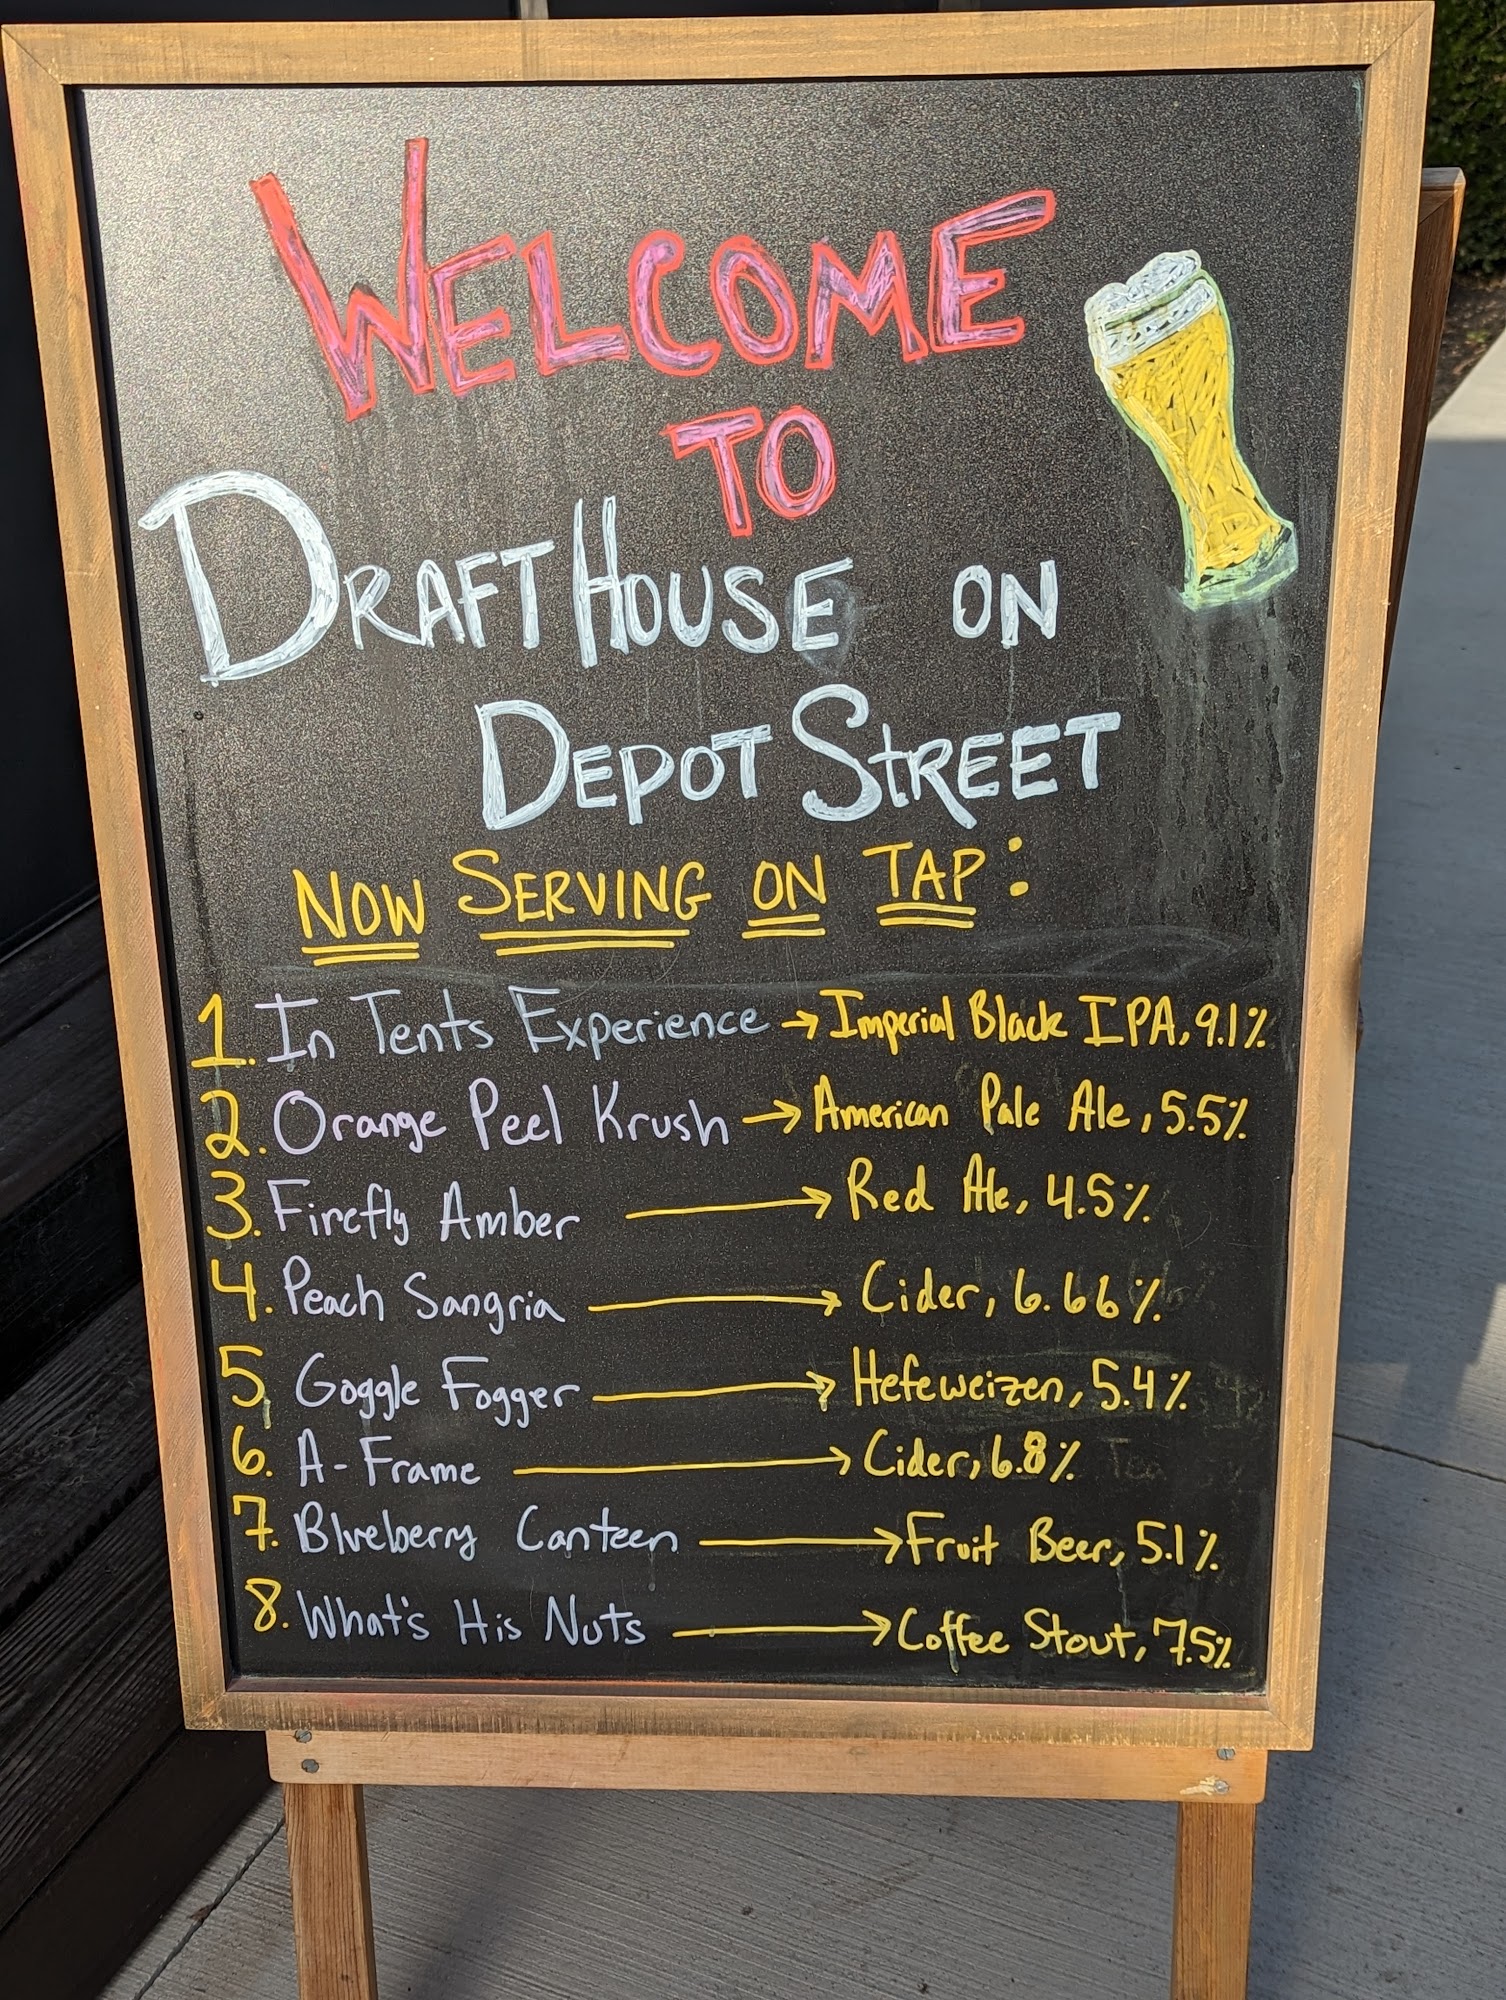 WELCOME
TO
DRAFTHOUSE ON
DEPOT STREET
NOW SERVING ON TAP:
1. In Tents Experience → Imperial Black IPA, 9.1%
2. Orange Peel Krush → American Pale Ale, 5.5%
3. Firefly Amber → Red Ale, 4.5%
4. Peach Sangria → Cider, 6.66%
5. Goggle Fogger → Hefeweizen, 5.4%
6. A-Frame → Cider, 6.8%
7. Blueberry Canteen → Fruit Beer, 5.1%
8. What's His Nuts → Coffee Stout, 7.5%